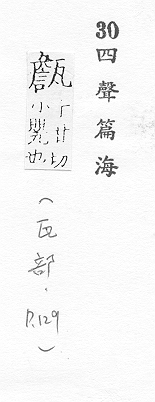 30四聲篇海
甔
丁甘切
小甖也
（瓦部．P.129）